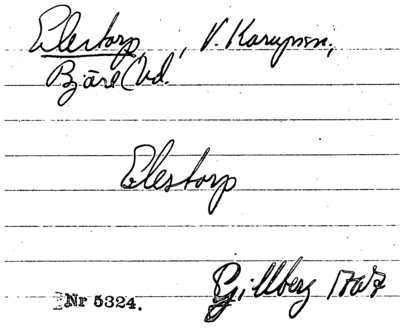 Elestorp, V. Karups sn,
Bjäre hd.
Elestorp
Gillberg 1767
Nr 5324.